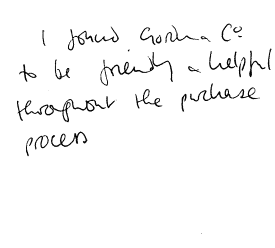 I found Gordon & Co
to be friendly & helpful
throughout the purchase
process